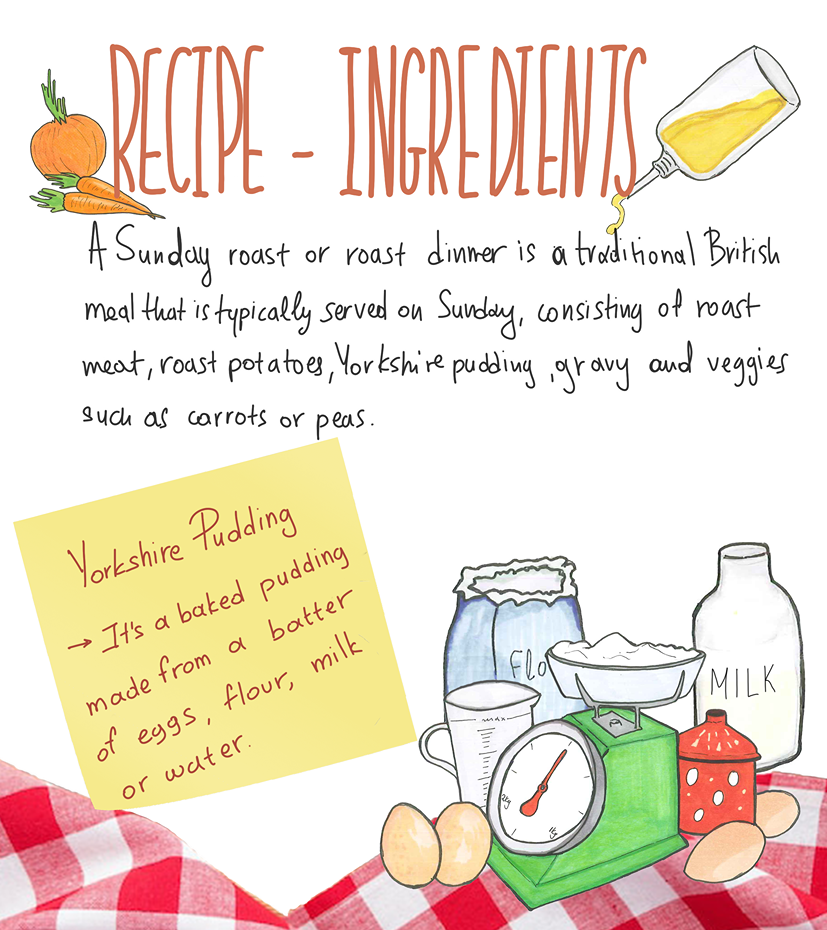 RECIPE - INGREDIENTS
A Sunday roast or roast dinner is a traditional British
meal that is typically served on Sunday, consisting of roast
meat, roast potatoes, Yorkshire pudding, gravy and veggies
such as carrots or peas.
Yorkshire Pudding
→ It's a baked pudding
made from a batter
of eggs, flour, milk
or water.
Flo
MILK
max